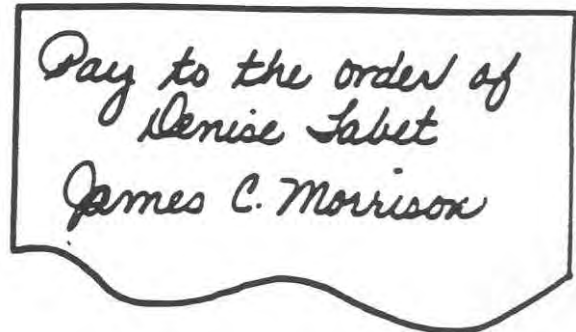 Pay to the order of
Denise Tabet
James C. Morrison